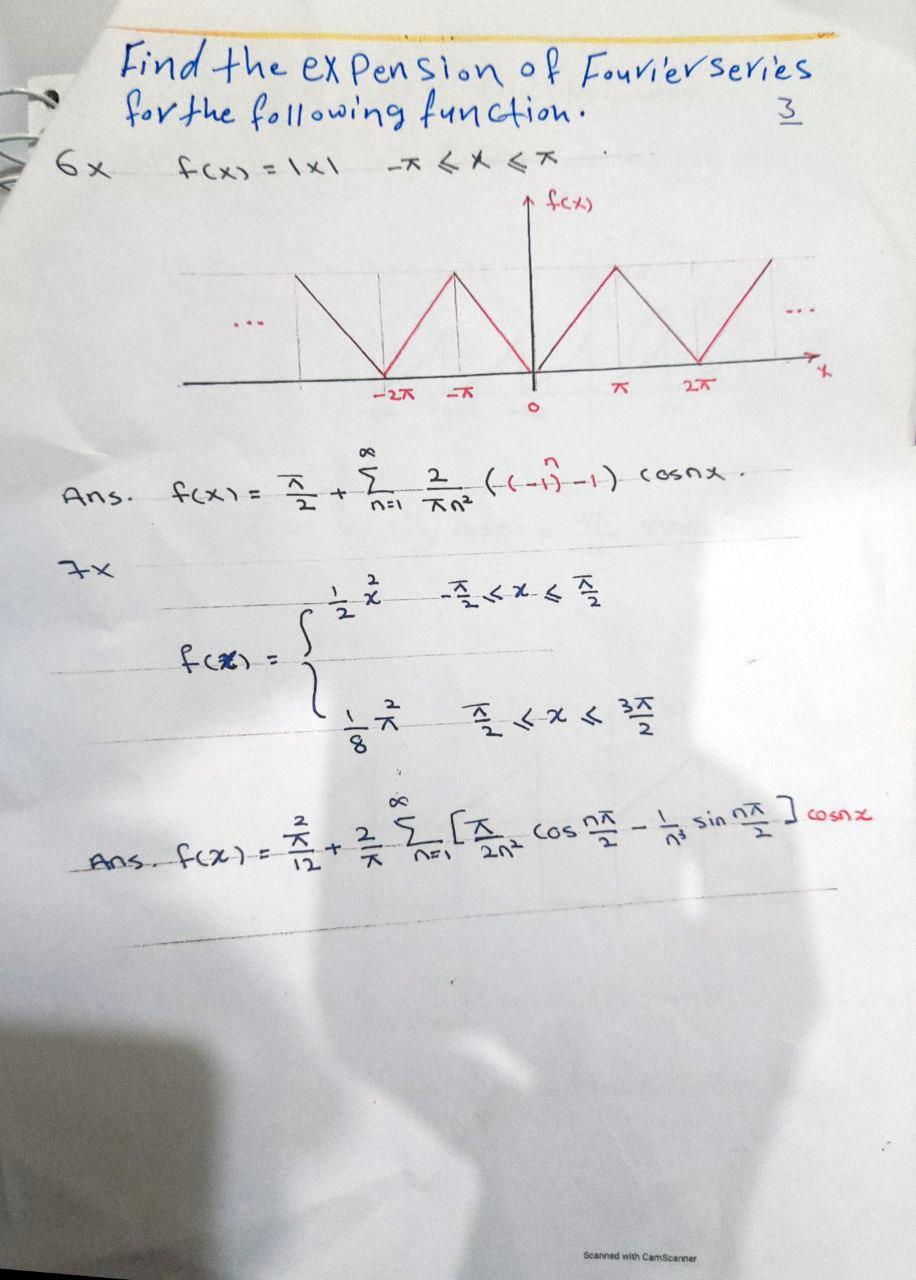 Find the expension of Fourier series
for the following function. 3
6x f(x) = |x| -π ≤ x ≤ π
f(x)
... ...
-2π -π 0 π 2π x
Ans. f(x) = π/2 + ∞Σn=1 2/πn² ((-1)ⁿ-1) cosnx.
7x
f(x) = { 1/2 x² -π/2 ≤ x ≤ π/2
1/8 π² π/2 ≤ x ≤ 3π/2
Ans. f(x) = π²/12 + 2/π ∞Σn=1 [π/2n² cos nπ/2 - 1/n³ sin nπ/2] cosnx
Scanned with CamScanner